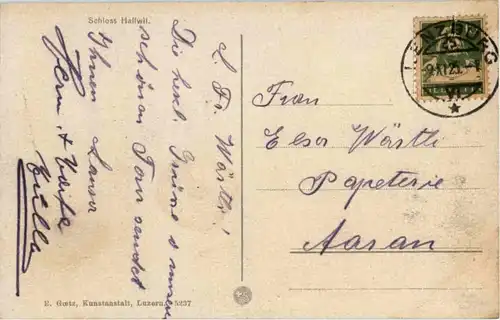 Schloss Hallwil.
L. Fr. Wärtli!
Die herzl. Grüsse v unserer
schönen Tour sendet
Ihnen Laura
Herm. &
LENZBURG
HELVETIA
Frau
Elsa Wärtli
Papeterie
Aarau
E. Goetz, Kunstanstalt, Luzern. 5237